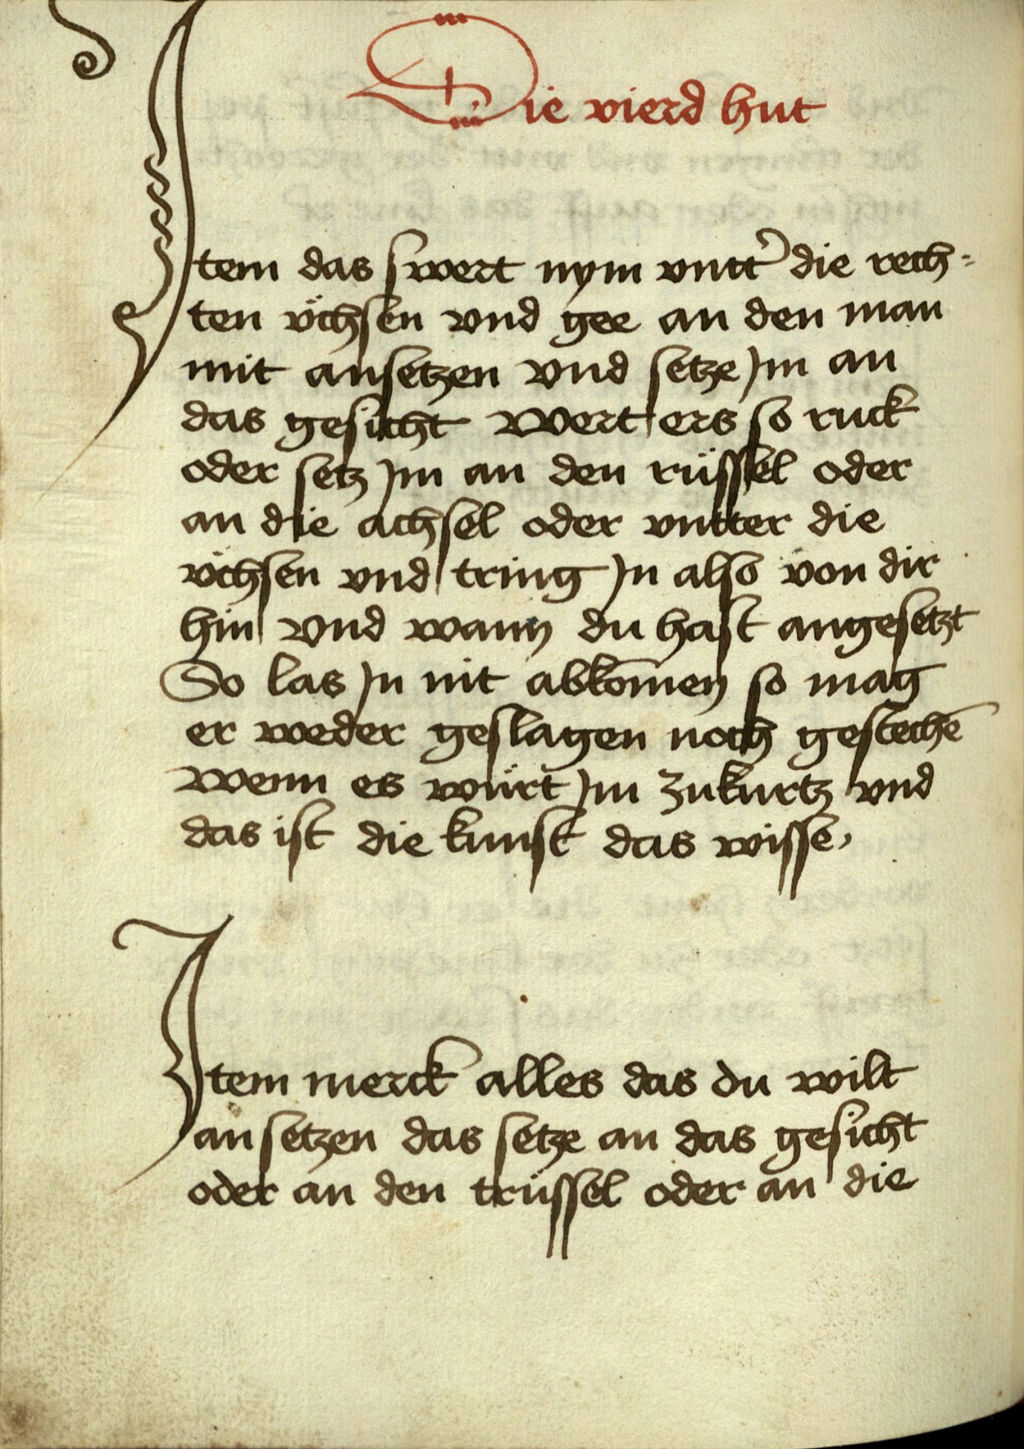 Die vierd hut
Item das swert nym vntt' die rech=
ten vͤchsen vnd gee an den man
mit ansetzen vnd setze Jm an
das gesicht Wert ers so ruck
oder setz Jm an den rüssel oder
an die achsel oder vntter die
vͤchsen vnd tring Jn also von dir
hin vnd wann du hast angesetzt
So las Jn nit abkōmen so mag
er weder geslagen noch gestechē
Wenn es würt Jm zukurtz vnd
das ist die kunst das wisse,
Item merck alles das du wilt
an setzen das setze an das gesicht
oder an den trüssel oder an die